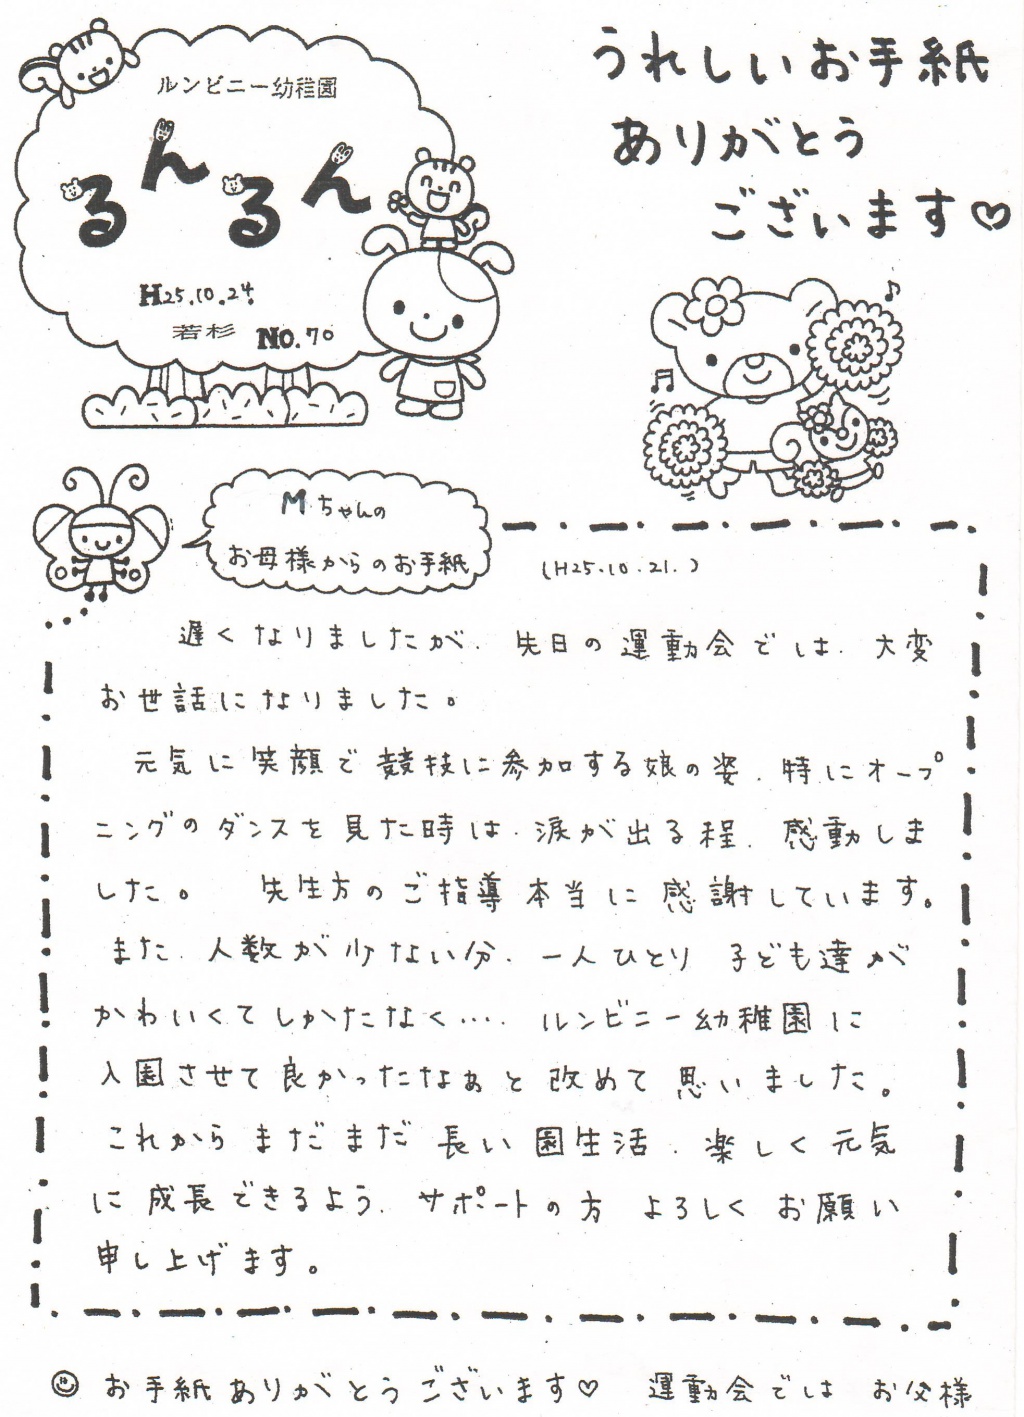 ルンビニー幼稚園
るんるん
H25.10.24.
若杉 No.70
うれしいお手紙
ありがとう
ございます♡
Mちゃんの
お母様からのお手紙
(H25.10.21.)
遅くなりましたが、先日の運動会では、大変
お世話になりました。
元気に笑顔で競技に参加する娘の姿、特にオープ
ニングのダンスを見た時は、涙が出る程、感動しま
した。 先生方のご指導本当に感謝しています。
また、人数が少ない分、一人ひとり 子ども達が
かわいくてしかたなく…. ルンビニー幼稚園に
入園させて良かったなぁと改めて思いました。
これからまだまだ長い園生活、楽しく元気
に成長できるよう、サポートの方 よろしくお願い
申し上げます。
お手紙ありがとうございます♡ 運動会では お父様